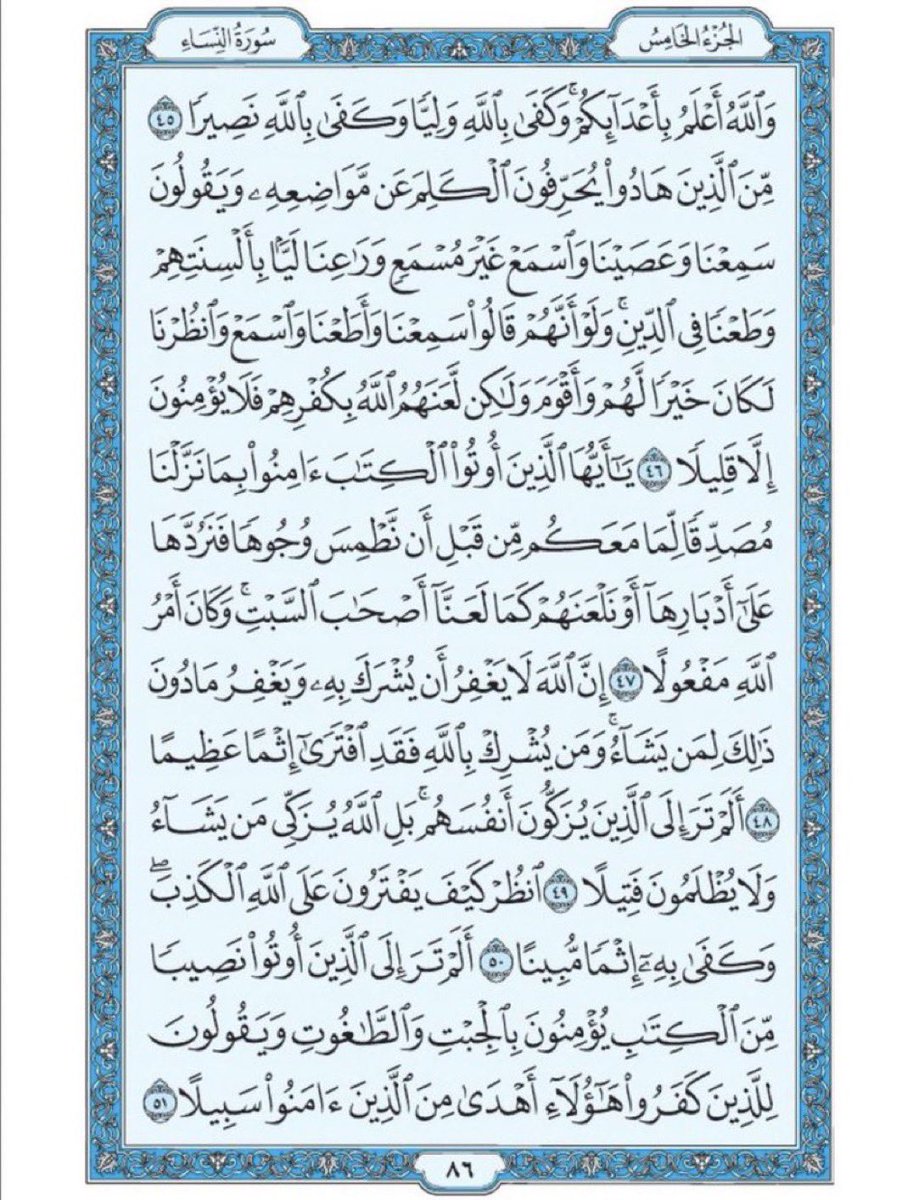 الجُزْءُ الخَامِسُ
سُورَةُ النِّسَاءِ
وَٱللَّهُ أَعْلَمُ بِأَعْدَآئِكُمْۚ وَكَفَىٰ بِٱللَّهِ وَلِيًّا وَكَفَىٰ بِٱللَّهِ نَصِيرًا ٤٥
مِّنَ ٱلَّذِينَ هَادُوا۟ يُحَرِّفُونَ ٱلْكَلِمَ عَن مَّوَاضِعِهِۦ وَيَقُولُونَ
سَمِعْنَا وَعَصَيْنَا وَٱسْمَعْ غَيْرَ مُسْمَعٍ وَرَٰعِنَا لَيًّۢا بِأَلْسِنَتِهِمْ
وَطَعْنًا فِى ٱلدِّينِۚ وَلَوْ أَنَّهُمْ قَالُوا۟ سَمِعْنَا وَأَطَعْنَا وَٱسْمَعْ وَٱنظُرْنَا
لَكَانَ خَيْرًا لَّهُمْ وَأَقْوَمَ وَلَـٰكِن لَّعَنَهُمُ ٱللَّهُ بِكُفْرِهِمْ فَلَا يُؤْمِنُونَ
إِلَّا قَلِيلًا ٤٦ يَـٰٓأَيُّهَا ٱلَّذِينَ أُوتُوا۟ ٱلْكِتَـٰبَ ءَامِنُوا۟ بِمَا نَزَّلْنَا
مُصَدِّقًا لِّمَا مَعَكُم مِّن قَبْلِ أَن نَّطْمِسَ وُجُوهًا فَنَرُدَّهَا
عَلَىٰٓ أَدْبَارِهَآ أَوْ نَلْعَنَهُمْ كَمَا لَعَنَّآ أَصْحَـٰبَ ٱلسَّبْتِۚ وَكَانَ أَمْرُ
ٱللَّهِ مَفْعُولًا ٤٧ إِنَّ ٱللَّهَ لَا يَغْفِرُ أَن يُشْرَكَ بِهِۦ وَيَغْفِرُ مَا دُونَ
ذَٰلِكَ لِمَن يَشَآءُۚ وَمَن يُشْرِكْ بِٱللَّهِ فَقَدِ ٱفْتَرَىٰٓ إِثْمًا عَظِيمًا
٤٨ أَلَمْ تَرَ إِلَى ٱلَّذِينَ يُزَكُّونَ أَنفُسَهُمۚ بَلِ ٱللَّهُ يُزَكِّى مَن يَشَآءُ
وَلَا يُظْلَمُونَ فَتِيلًا ٤٩ ٱنظُرْ كَيْفَ يَفْتَرُونَ عَلَى ٱللَّهِ ٱلْكَذِبَۖ
وَكَفَىٰ بِهِۦٓ إِثْمًا مُّبِينًا ٥٠ أَلَمْ تَرَ إِلَى ٱلَّذِينَ أُوتُوا۟ نَصِيبًا
مِّنَ ٱلْكِتَـٰبِ يُؤْمِنُونَ بِٱلْجِبْتِ وَٱلطَّـٰغُوتِ وَيَقُولُونَ
لِلَّذِينَ كَفَرُوا۟ هَـٰٓؤُلَآءِ أَهْدَىٰ مِنَ ٱلَّذِينَ ءَامَنُوا۟ سَبِيلًا ٥١
٨٦